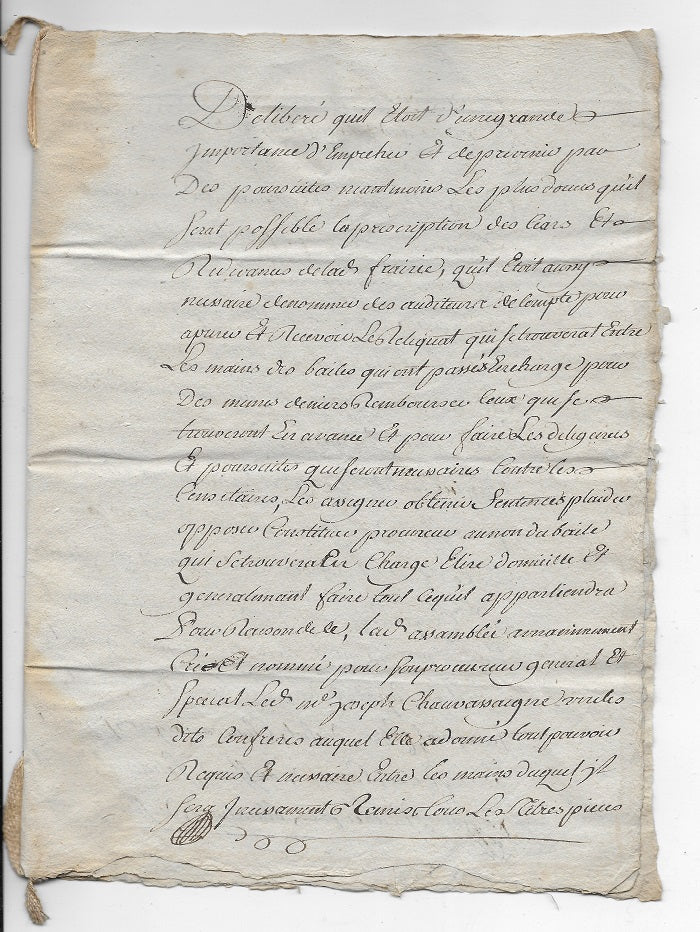 Deliberé quil Etoit d'une grande
Importance d'Empecher Et de prevenir par
Des poursuites neantmoins Les plus douces qu'il
serat possible la prescription des Cens Et
Redevances de lad frairie, qu'il Etoit aussy
nessaire de nommer des auditeurs de Compte pour
apurer Et Recevoir Le Reliquat qui se trouverat Entre
Les mains des bailes qui ont passés En charge pour
Des memes deniers Rembourser Ceux qui se
trouveront En avance Et pour faire Les diligences
Et poursuites qui seront nessaires Contre les
Censitaires, Les assigner obtenir Sentences plaider
opposer Constituer procureur au nom du baile
qui se trouvera En Charge Elire domicille Et
generalment faire tout ce qu'il appartiendra
Pour Raison de ce, lad assamblée a unanimment
Créé Et nommé pour son procureur general Et
special Led me Joseph Chauvassaigne un des
dits Confreres auquel Elle a donné tout pouvoir
Requis Et nessaire Entre les mains duquel jl
sera Jncessament Remis tous Les titres pieces